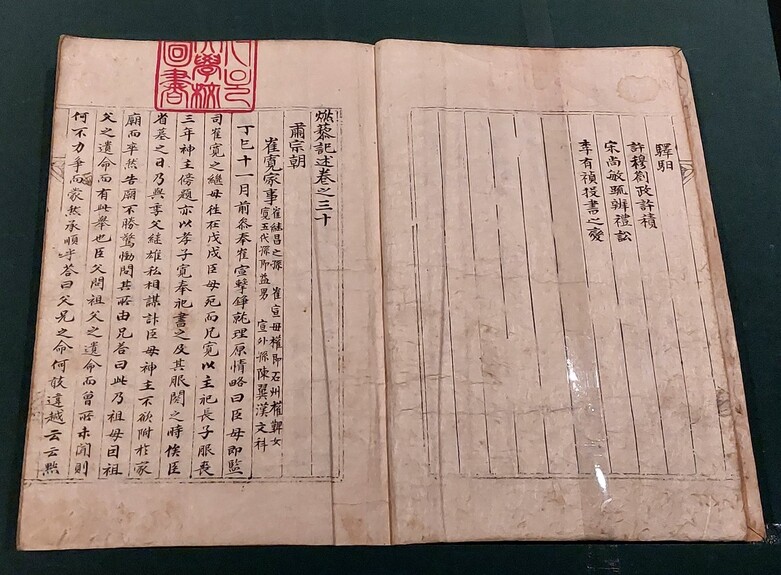 許穆劄政許積
宋尚敏疏辨禮訟
李有禎投書之變
燃藜記述卷之三十
肅宗朝
崔寬家事
崔継昌之孫 崔宣母權即石州權韠女
寬五代孫即益男 宣外孫陳翼漢文科
丁巳十一月前叅奉崔宣擊錚就理原情略曰臣母即監
司崔寬之継母徃在戊戌臣母死而兄寬以主祀長子服喪
三年神主傍題亦以孝子寬奉祀書之及其服闋之時俟臣
省墓之日乃與季父継雄私相謀計臣母神主不欲附於家
廟而卒然告廟不勝驚慟問其所由兄答曰此乃祖母因祖
父之遺命而有此擧也臣父聞祖父之遺命而曾所未聞則
何不力爭而蒙然承順乎答曰父兄之命何敢違越云云